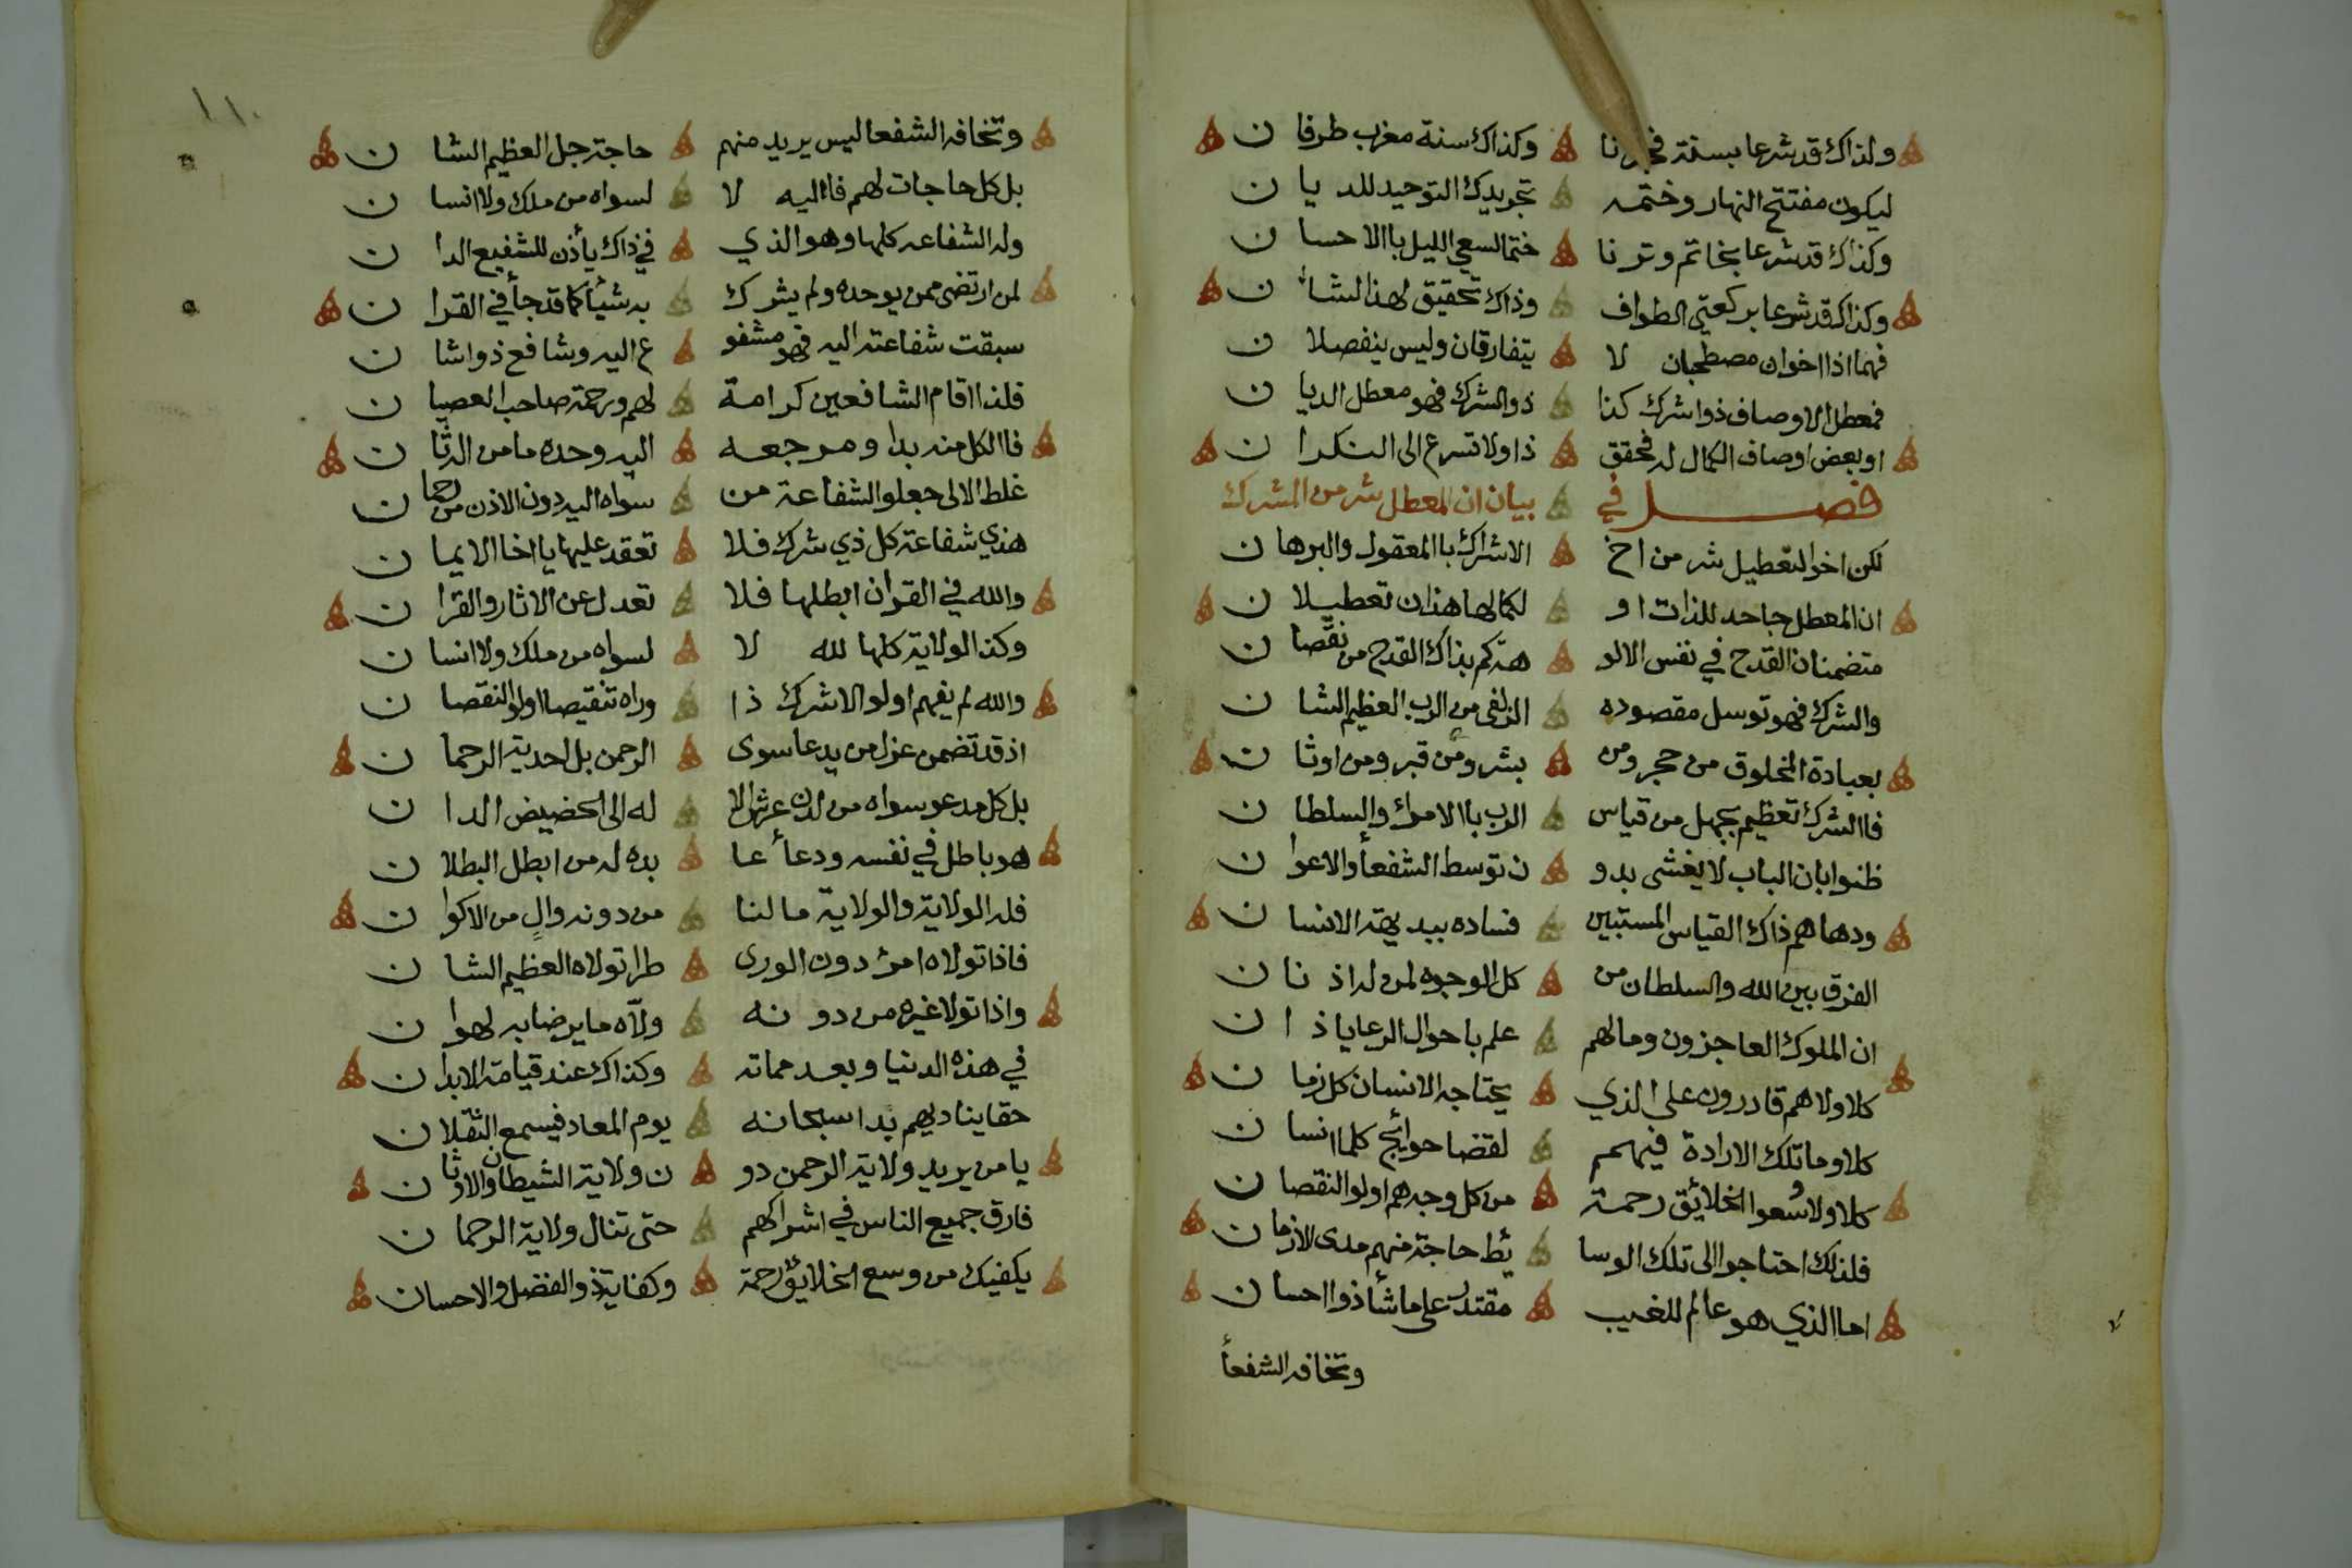 ولذاك قد شرعا بسنة فجرنا وكذاك سنة مغرب طرفا ن
ليكون مفتتح النهار وختمه تجريدك التوحيد للديا ن
وكذاك قد شرعا بخاتم وترنا ختما لسعي الليل باالاحسا ن
وكذاك قد شرعا بركعتي الطواف وذاك تحقيق لهذا لشا ن
فهما اذا اخوان مصطحبان لا يتفارقان وليس ينفصلا ن
فمعطل الاوصاف ذواشرك كذا ذوالشرك فهو معطل الديا ن
اوبعض اوصاف الكمال له فحقق ذا ولا تسرع الى النكرا ن
فصل في بيان ان المعطل شر من المشرك
لكن اخوالتعطيل شر من اخ الاشراك باالمعقول والبرها ن
ان المعطل جاحد للذات او لكمالها هذان تعطيلا ن
متضمنان القدح في نفس الالو هة كم بذاك القدح من نقصا ن
والشرك فهو توسل مقصوده الزلفى من الرب العظيم الشا ن
بعبادة المخلوق من حجر ومن بشر ومن قبر ومن اوثا ن
فاالشرك تعظيم بجهل من قياس الرب باالامراء والسلطا ن
ظنوا بان الباب لا يغشى بدو ن توسط الشفعأ والاعوا ن
ودهاهم ذاك القياس المستبين فساده ببديهة الانسا ن
الفرق بين الله والسلطان من كل الوجوه لمن له اذ نا ن
ان الملوك لعاجزون ومالهم علم باحوال الرعايا ذ ا ن
كلا ولا هم قادرون على الذي يحتاجه الانسان كل زما ن
كلا وما تلك الارادة فيهم لقضا حوائج كلما انسا ن
كلا ولا وسعوا الخلائق رحمة من كل وجه هم اولوالنقصا ن
فلذلك احتاجوا الى تلك الوسا ئط حاجة منهم مدى الازما ن
اما الذي هو عالم للغيب مقتدر على ماشأ ذوااحسا ن
وتخافه الشفعأ
١١٠
وتخافه الشفعا ليس يريد منهم حاجة جل العظيم الشا ن
بل كل حاجات لهم فااليه لا لسواه من ملك ولا انسا ن
وله الشفاعه كلها وهو الذي في ذاك يأذن للشفيع الدا ن
لمن ارتضى ممن يوحده ولم يشرك به شيأ كما قد جأ في القرا ن
سبقت شفاعته اليه فهو مشفو ع اليه وشافع ذواشا ن
فلذا اقام الشافعين كرامة لهم ورحمة صاحب العصيا ن
فاالكل منه بدا ومرجعه اليه وحده ما من اله ثا ن
غلط الالى جعلو الشفاعة من سواه اليه دون الاذن من رحما ن
هذي شفاعة كل ذي شرك فلا تعقد عليها يا اخا الايما ن
والله في القران ابطلها فلا تعدل عن الاثار والقرا ن
وكذا الولاية كلها لله لا لسواه من ملك ولا انسا ن
والله لم يفهم اولو الاشراك ذا وراه تنقيصا اولوالنقصا ن
اذ قد تضمن عزل من يدعا سوى الرحمن بل احدية الرحما ن
بل كل مدعو سواه من لدن عرش الا له الى الحضيض الدا ن
هو باطل في نفسه ودعأ عا بده له من ابطل البطلا ن
فله الولاية والولاية مالنا من دونه والٍ من الاكوا ن
فاذا تولاه امرؤ دون الورى طرا تولاه العظيم الشا ن
واذا تولا غيره من دو نه ولّاه ما يرضا به لهوا ن
في هذه الدنيا وبعد مماته وكذاك عند قيامة الابدا ن
حقا يناديهم بدا سبحانه يوم المعاد فيسمع الثقلا ن
يا من يريد ولاية الرحمن دو ن ولاية الشيطان والاوثا ن
فارق جميع الناس في اشراكهم حتى تنال ولاية الرحما ن
يكفيك من وسع الخلايق رحمة وكفاية ذوالفضل والاحسان